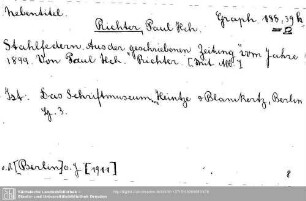 Nebentitel.
Richter, Paul Hch. Graph 188, 39 k
Stahlfedern. Aus der geschriebenen Zeitung vom Jahre
1899. Von Paul Hch. Richter. [Mit Abb.]
Ist: Das Schriftmuseum Heintze & Blanckertz, Berlin
Jg. 3.
o.O. [Berlin] o. J. [1911] 8
Sächsische Landesbibliothek -
Staats- und Universitätsbibliothek Dresden